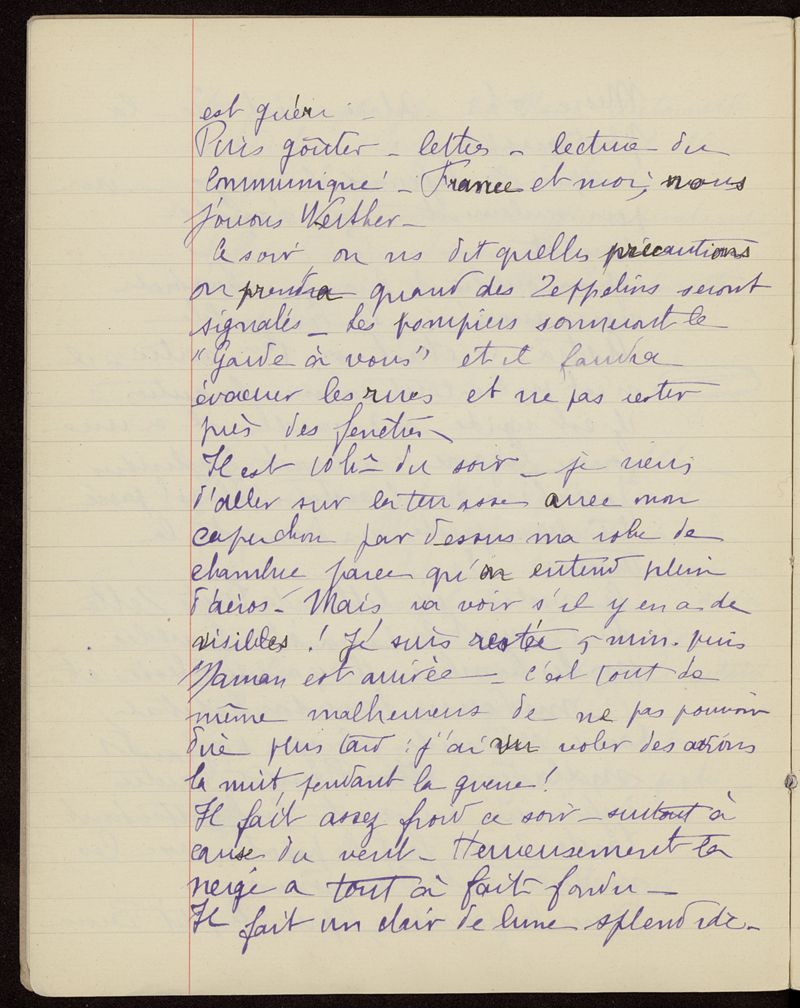 est guéri –
Puis goûter – lettres – lecture du
Communiqué – France et moi, nous
jouons Werther –
Ce soir, on ns dit quelles précautions
on prendra quand des Zeppelins seront
signalés – Les pompiers sonneront le
"Garde à vous" et il faudra
évacuer les rues et ne pas rester
près des fenêtres –
Il est 10h – du soir – je viens
d'aller sur la terrasse avec mon
capuchon par dessus ma robe de
chambre parce qu'on entend plein
d'aéros – Mais va voir s'il y en a de
visibles ! Je suis restée 5 min. puis
Maman est arrivée – C'est tout de
même malheureux de ne pas pouvoir
dire plus tard : j'ai vu voler des avions
la nuit, pendant la guerre !
Il fait assez froid ce soir – surtout à
cause du vent – Heureusement la
neige a tout à fait fondu –
Il fait un clair de lune splendide –